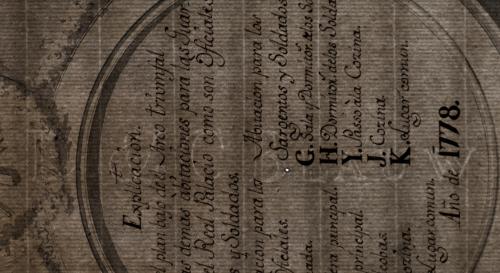 Explicación.
l plan bajo del Arco triumfal
as demas abitaciones para las Guar-
el Real Palacio como son, Oficiales
s y Soldados.
acion para los Abitacion para los
Oficiales. Sargentos y Soldados
ada. G. Sala y Dormitor. de los
H. Dormitor. de los Solda
era principal. Y. Passo à la Cozina.
principal. J. Cozina.
cobas. K. Lugar comun.
ozina.
lugar comun.
Año de 1778.